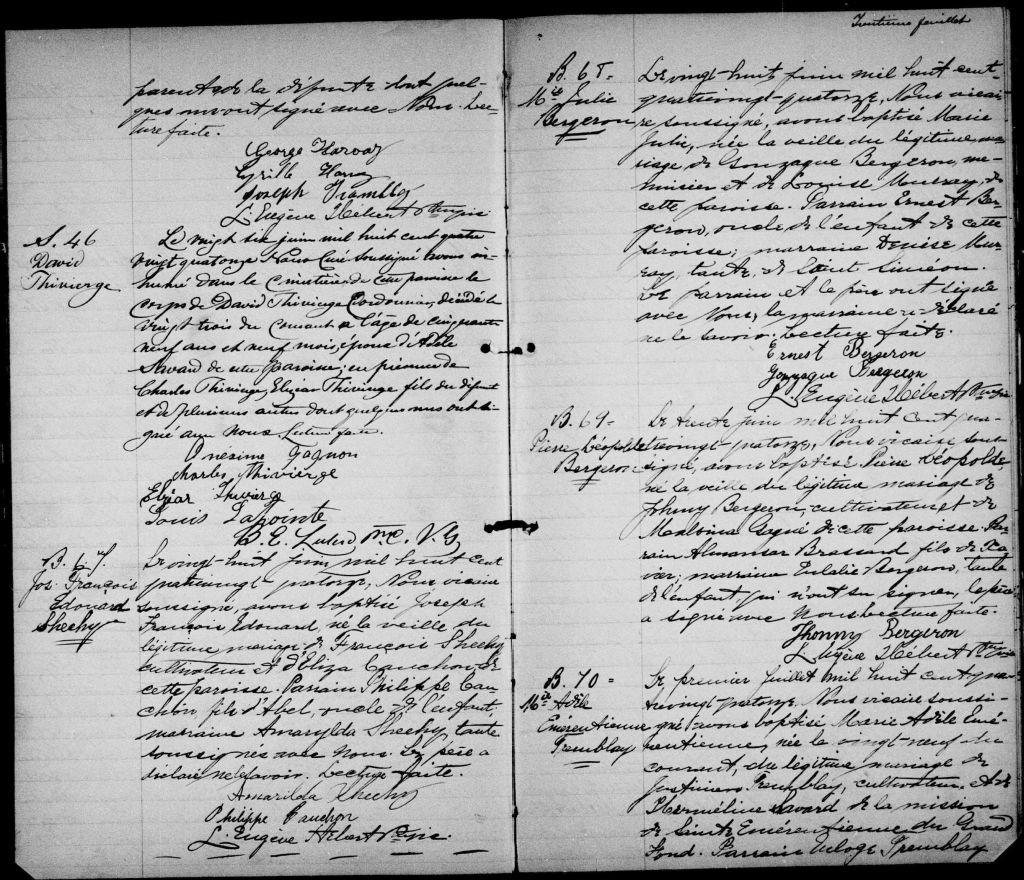 parents de la défunte dont quel-
ques uns ont signé avec Nous. Lec-
ture faite.
George Harvay
Cyrille Harvay
Joseph Tremblay
L. Eugène Hébert Ptre vic.
S. 46
David
Thivierge
Le vingt six juin mil huit cent quatre
vingt quatorze Nous Curé soussigné avons in-
humé dans le cimetière de cette paroisse le
corps de David Thivierge Cordonnier, décédé le
vingt trois du courant à l'âge de cinquante
neuf ans et neuf mois, époux d'Adèle
Savard de cette paroisse; en présence de
Charles Thivierge, Elzéar Thivierge fils du défunt
et de plusieurs autres dont quelques uns ont si-
gné avec nous. Lecture faite.
Onesime Gagnon
Charles Thivierge
Elzéar Thivierge
Louis Lapointe
B. 67.
Jos. François
Edouard
Sheehy
Le vingt-huit juin, mil huit cent
quatrevingt quatorze, Nous vicaire
soussigné, avons baptisé Joseph
François Edouard, né la veille du
légitime mariage de François Sheehy
cultivateur et d'Eliza Cauchon de
cette paroisse. Parrain Philippe Cau-
chon fils d'Abel, oncle de l'enfant
marraine Amarylda Sheehy, tante
soussignés avec Nous. Le père a
déclaré ne le savoir. Lecture faite.
Amarilda Sheehy
Philippe Cauchon
L. Eugène Hébert Ptre vic.
Trentième feuillet
B. 68-
Mie Julie
Bergeron
Le vingt-huit juin mil huit cent-
quatrevingt-quatorze, Nous vicai-
re soussigné, avons baptisé Marie
Julie, née la veille du légitime ma-
riage de Gonzague Bergeron, me-
nuisier et de Louise Murray, de
cette paroisse. Parrain Ernest Ber-
geron, oncle de l'enfant de cette
paroisse; marraine Denise Mur-
ray, tante, de Saint Siméon.
Le parrain et le père ont signé
avec Nous, la marraine a déclaré
ne le savoir. Lecture faite.
Ernest Bergeron
Gonzague Bergeron
L. Eugène Hébert Ptre vic
B. 69-
Pierre Léopold
Bergeron
Le trente juin mil huit cent qua-
trevingt-quatorze, Nous vicaire sous-
signé, avons baptisé Pierre Léopold
né la veille du légitime mariage de
Johnny Bergeron, cultivateur, et de
Madloina Gagné de cette paroisse. Par-
rain Almansar Brassard fils de Xa-
vier; marraine Eulalie Bergeron, tante
de l'enfant qui n'ont su signer, le père
a signé avec Nous. Lecture faite.
Jhonny Bergeron
L. Eugène Hébert Ptre vic
B. 70-
Mie Adèle
Emérentienne
Tremblay
Le premier juillet mil huit cent qua
trevingt quatorze. Nous vicaire soussi-
gné avons baptisé Marie Adèle Emé-
rentienne, née le vingt-neuf du
courant, du légitime mariage de
Justinien Tremblay, cultivateur, et de
Herméline Savard de la mission
de Sainte Emérentienne du Grand
Fond. Parrain Euloge Tremblay